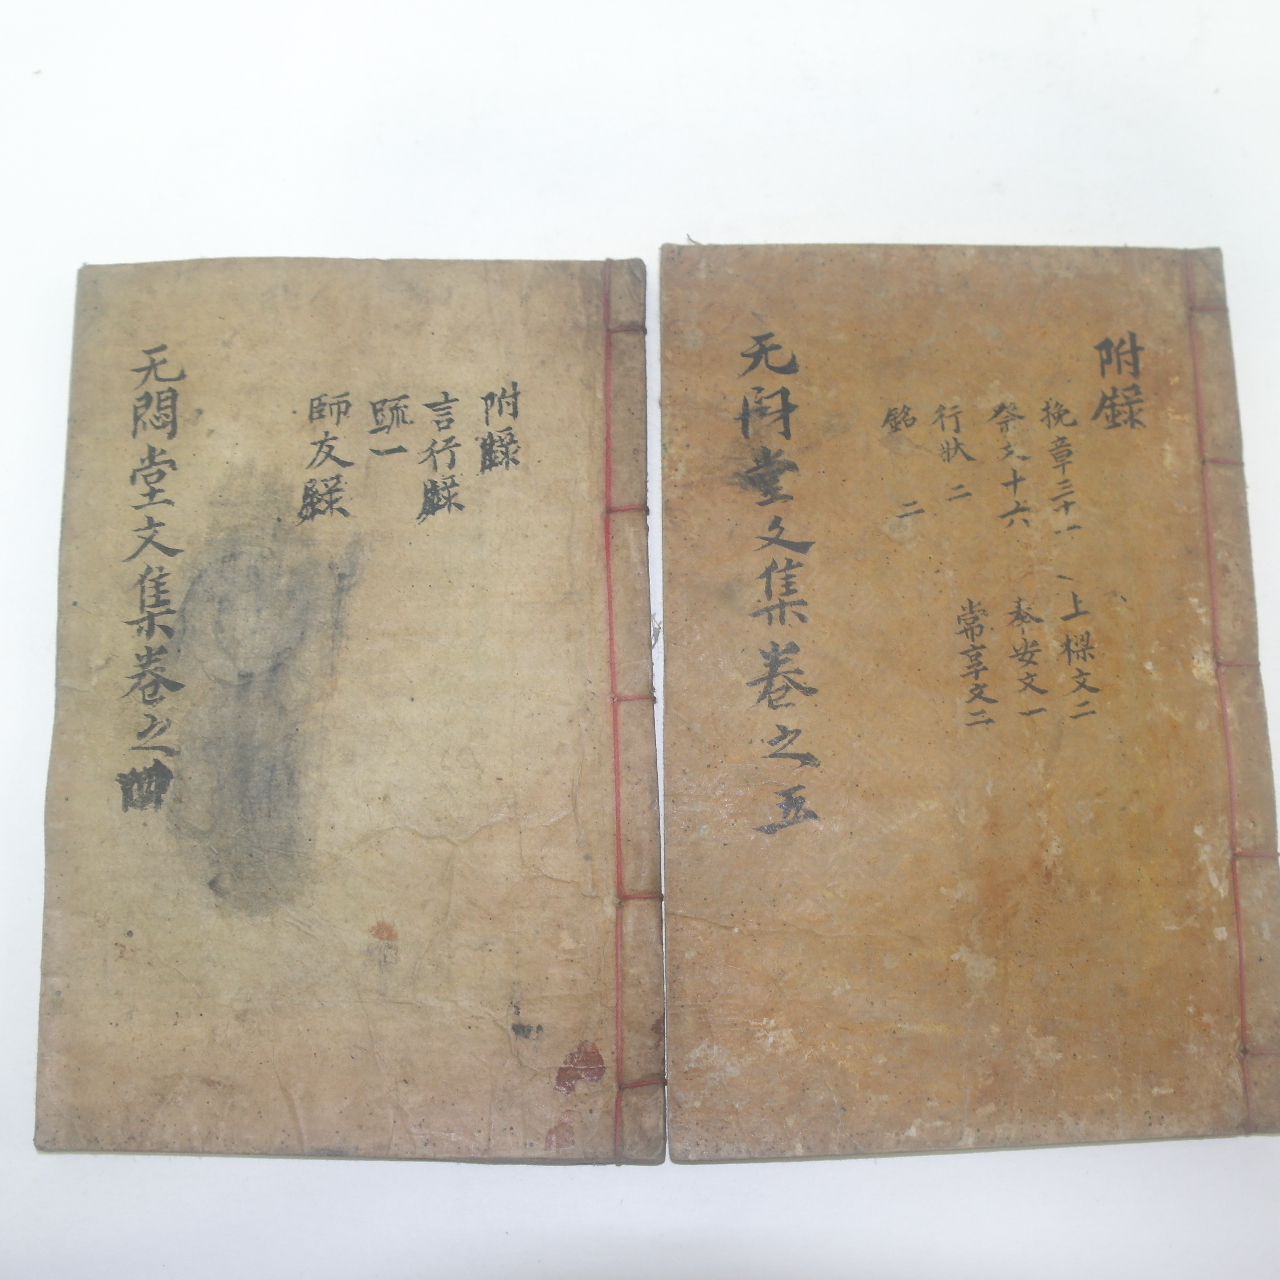 附錄
挽章三十一
祭文十六
行狀 二
銘 二
上樑文二
奉安文一
常享文二
无悶堂文集卷之五
附錄
言行錄
疏一
師友錄
无悶堂文集卷之四